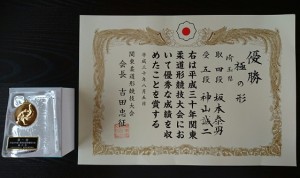 優勝
極の形
埼玉県
取 四段 坂本泰男
受 五段 神山誠二
右は平成三十年関東
柔道形競技大会にお
いて優秀な成績を収
めたことを賞する
平成三十年八月五日
関東柔道形競技大会
会長 吉田忠征